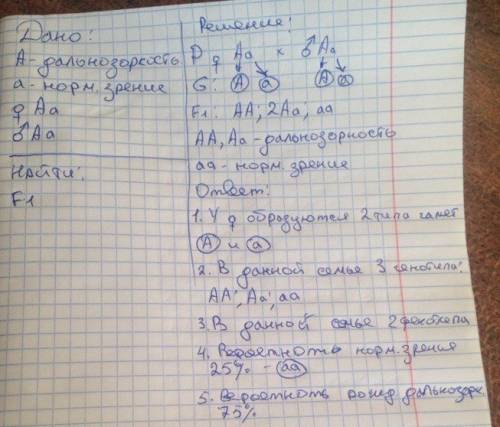 Дано:
А - дальнозоркость
а - норм. зрение
♀ Аа
♂ Аа
Найти:
F1
Решение:
P ♀ Аа × ♂ Аа
G: А а А а
F1: АА; 2Аа; аа
АА, Аа - дальнозоркость
аа - норм. зрение
Ответ:
1. У ♀ образуются 2 типа гамет
А и а
2. В данной семье 3 генотипа:
АА; Аа; аа
3. В данной семье 2 фенотипа
4. Вероятность норм. зрения
25% - аа
5. Вероятность рожд. дальнозорк.
75%